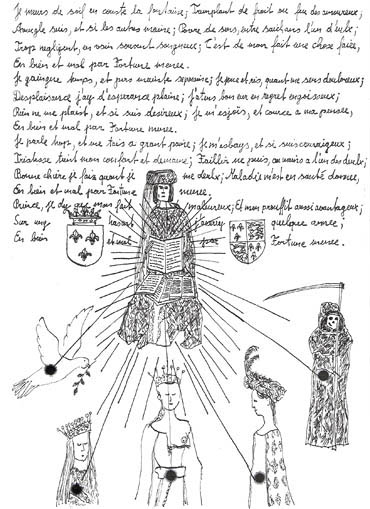 Je meurs de soif en couste la fontaine; Tremblant de froit ou feu des amoureux;
Aveugle suis, et si les autres maine; Povre de sens, entre saichans l'un d'eulx;
Trop negligent, en vain souvent songneux; C'est de mon fait une chose faiee,
En bien et mal par Fortune menee.
Je gaingne temps, et pers mainte sepmaine; Je joue et ris, quant me sens douloreux;
Desplaisance j'ay d'esperance plaine; J'atens bon eur en regret engoisseux;
Rien ne me plaist, et si suis desireux; Je m'esjois, et cource a ma pensee,
En bien et mal par Fortune menee.
Je parle trop, et me tais a grant paine; Je m'esbays, et si suis couraigeux;
Tristesse tient mon confort en demaine; Faillir ne puis, au mains a l'un des deulx;
Bonne chiere je fais quant je me deulx; Maladie m'est en santé donnee,
En bien et mal par Fortune menee.
Prince, je dy que mon fait maleureux; Et mon prouffit aussi avantageux;
Sur ung hasart j'asserray quelque annee,
En bien et mal par Fortune menee.